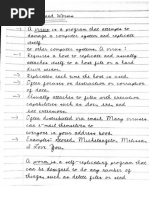 and Worms
A virus is a program that attempts to
damage a computer system and replicate
itself
to other computer systems. A virus :
Requires a host to replicate and usually
attaches itself to a host file or a hard
drive sector.
Replicates each time the host is used.
Often focuses on destruction or corruption
of data.
Usually attaches to files with execution
capabilities such as .doc, .exe, and
.bat extensions.
Often distributes via e-mail. Many viruses
can e-mail themselves to
everyone in your address book.
Examples: Stoned, Michelangelo, Melissa,
I Love You.
A worm is a self-replicating program that
can be designed to do any number of
things, such as delete files or send